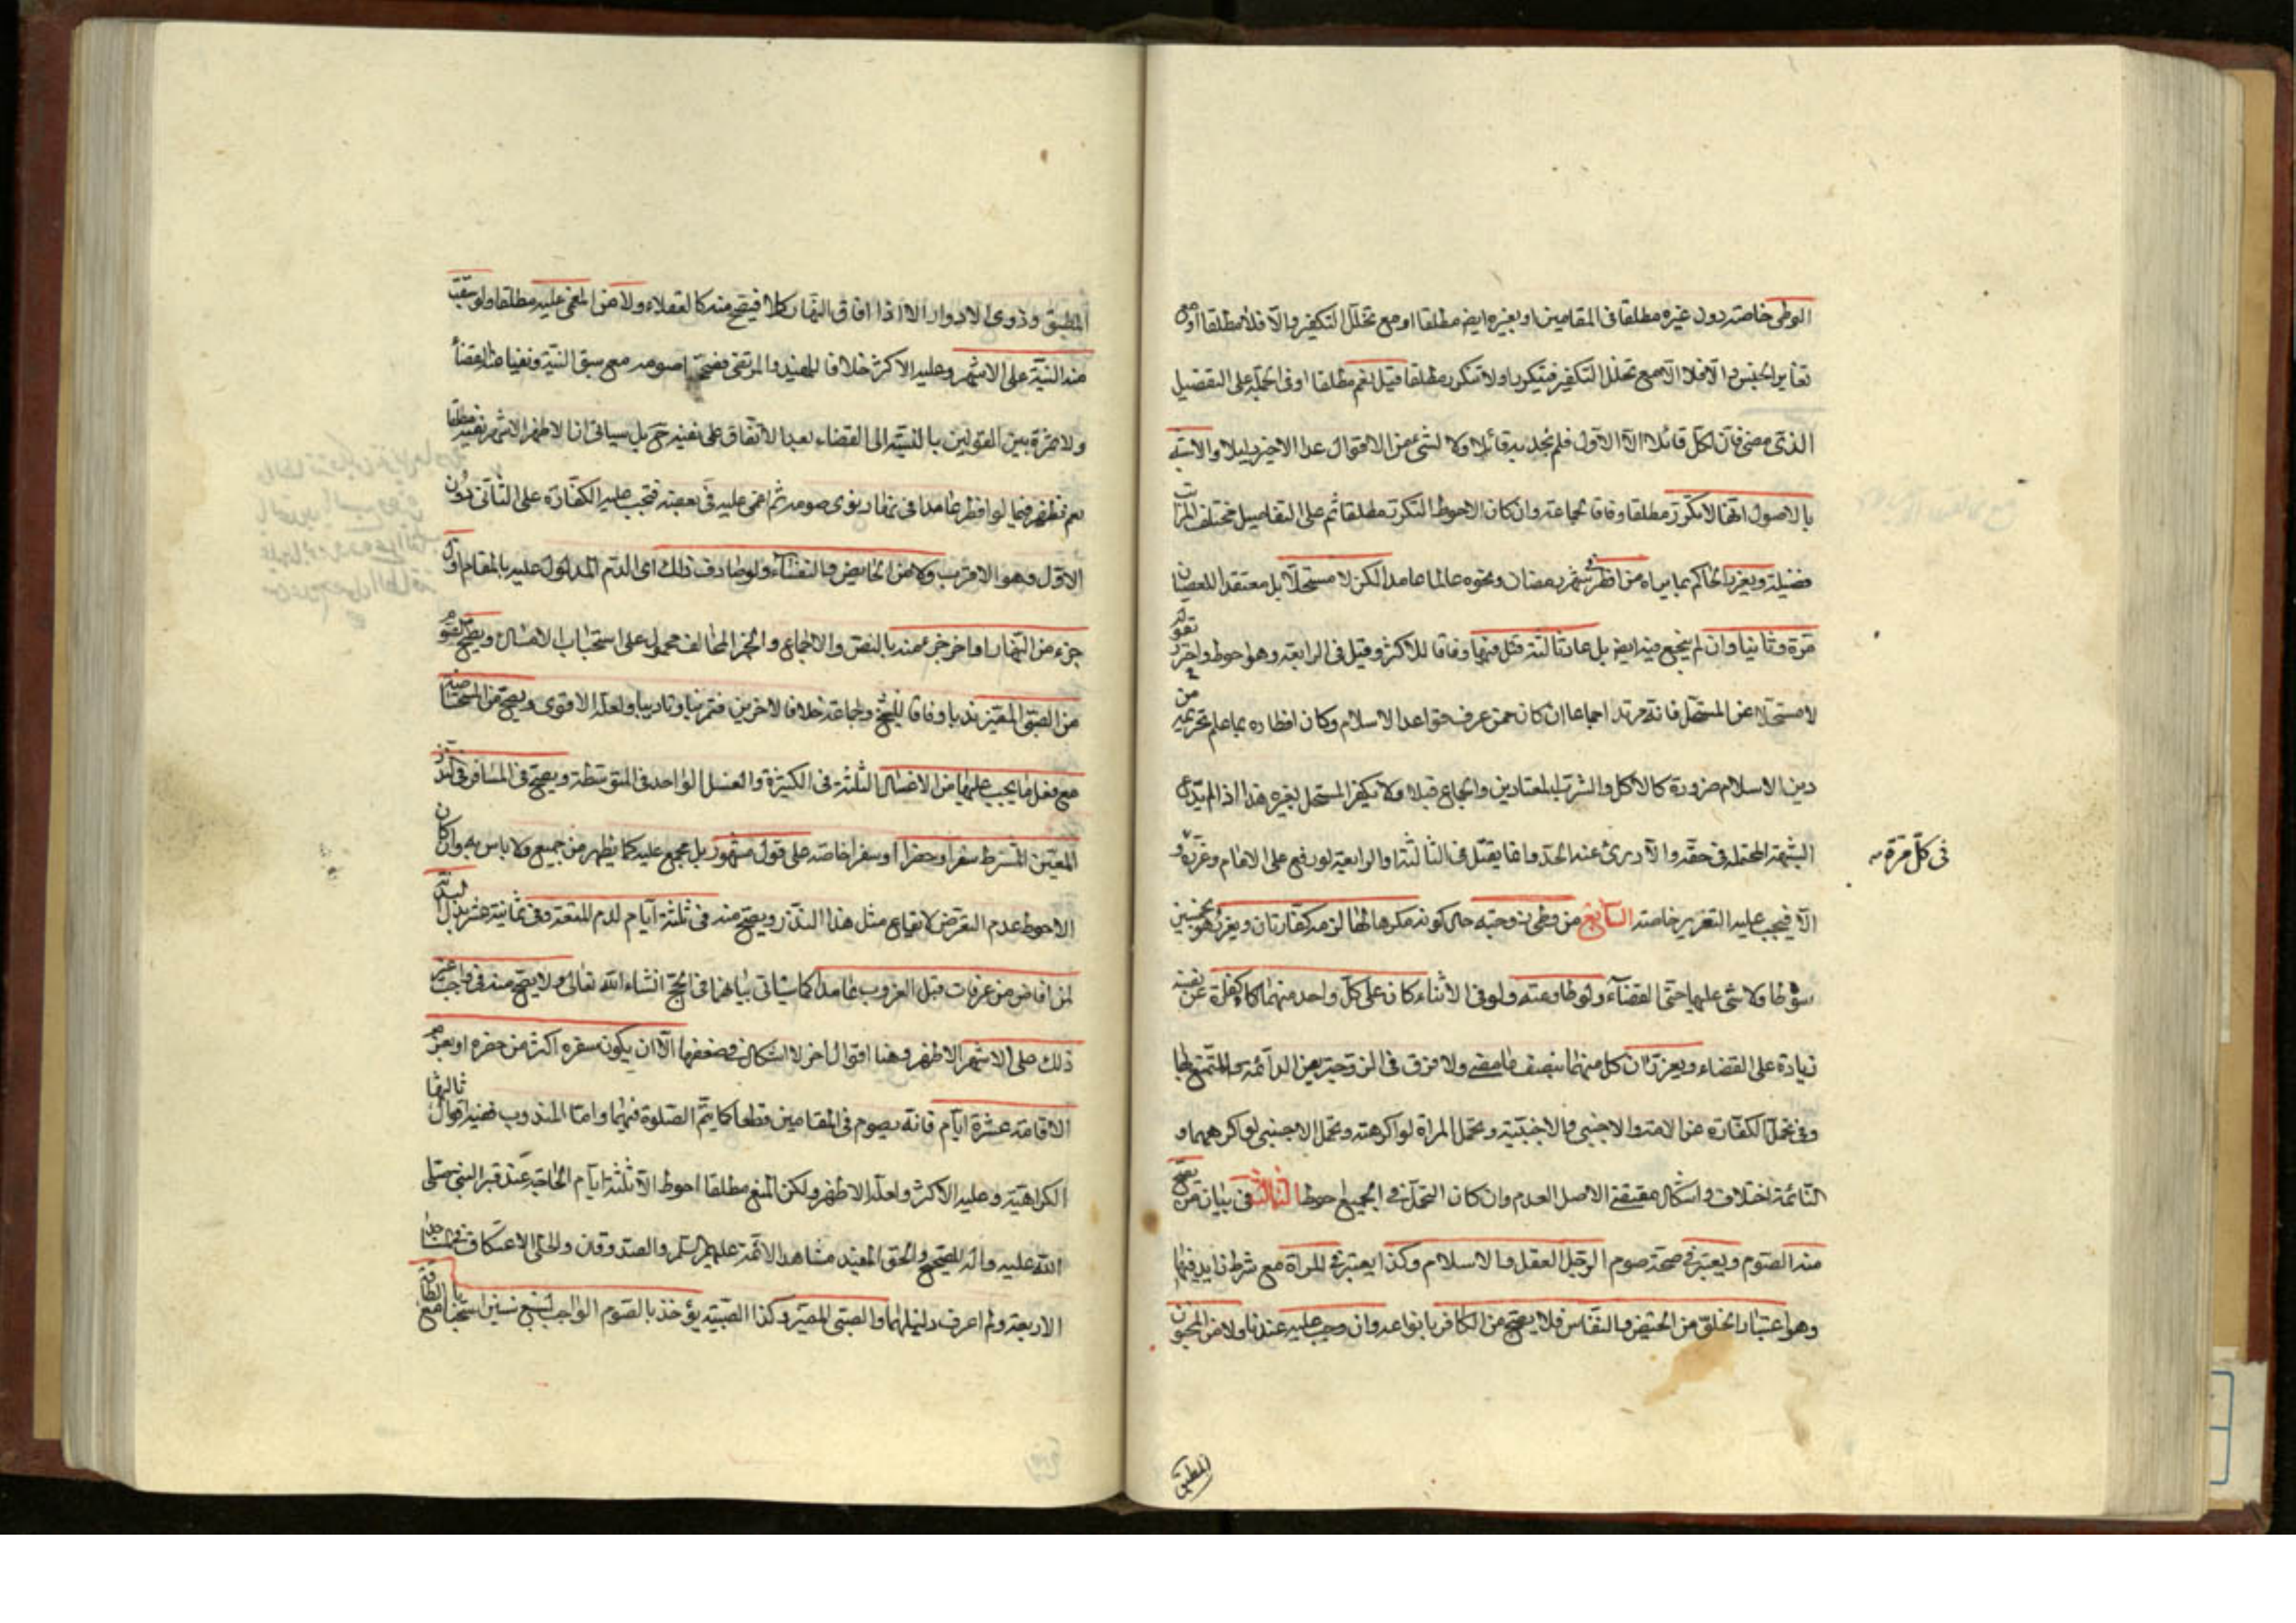 الوطي خاصة دون غيره مطلقا في المقامين او بغيره ايض مطلقا او مع تخلل التكفير والا فلا مطلقا او مع
تغاير الجنس والا فلا الا مع تخلل التكفير فيتكرر او لا تتكرر مطلقا قيل نعم مطلقا او في الجملة على التفصيل
الذي مضى فان لكل قائلا الا الاول فلم نجد به قائلا ولا لشئ من الاقوال عدا الاخير دليلا والاشبه
بالاصول انها لا تتكرر مطلقا وفاقا لجماعة وان كان الاحوط التكرر مطلقا ثم على التفاصيل مختلف المراتب
فضيلة ويعزر الحاكم بما يراه من افطر شهر رمضان ونحوه عالما عامدا لكن لا مستحلا بل معتقدا للعصيان
مرة وثانيا وان لم ينجع فيه ايض بل عاد ثالثة قتل فيها وفاقا للاكثر وقيل في الرابعة وهو احوط واحترز بقوله
لا مستحلا عن المستحل فانه مرتد اجماعا ان كان ممن عرف قواعد الاسلام وكان افطاره بما علم تحريمه من
دين الاسلام ضرورة كالاكل والشرب المعتادين والجماع قبلا ولا يكفر المستحل بغيره هذا اذا لم يدع
الشبهة المحتملة في حقه والا درئ عنه الحد وانما يقتل في الثالثة او الرابعة لو رفع على الامام وعزره
في كل مرة
الا فيجب عليه التعزير خاصة السابع من وطئ زوجته حال كونه مكرها لها لزمه كفارتان ويعزر هو بخمسين
سوطا ولا شئ عليها حتى القضاء ولو طاوعته ولو في الاثناء كان على كل واحد منهما كفارة عن نفسه
زيادة على القضاء ويعزران كل منهما بنصف ما مضى ولا فرق في الزوجة بين الدائمة والمتمتع بها
وفي تحمل الكفارة عن الامة والاجنبي والاجنبية وتحمل المراة لو اكرهته وتحمل الاجنبي لو اكرههما و
النائمة اختلاف واشكال مقتضى الاصل العدم وان كان التحمل في الجميع احوط الثالث في بيان من يصح
منه الصوم ويعتبر في صحة صوم الرجل العقل والاسلام وكذا يعتبر في المراة مع شرط زايد فيها
وهو اعتبار الخلو من الحيض والنفاس فلا يصح من الكافر بانواعه وان وجب عليه عندنا ولا من المجنون
المطبق
المطبق وذوي الادوار الا اذا افاق النهار كلا فيصح منه كالعقلاء ولا من المغمى عليه مطلقا ولو سبقت
منه النية على الاشهر وعليه الاكثر خلافا للمفيد والمرتضى فصححا صومه مع سبق النية ونفيا عنه القضاء
ولا ثمرة بين القولين بالنسبة الى القضاء بعد الاتفاق على نفيه ح بل سياتي ان الاظهر الاشهر نفيه مطلقا
نعم تظهر فيما لو افطر عامدا في نهار ينوي صومه ثم اغمى عليه في بعضه فتجب عليه الكفارة على الثاني دون
الاول وهو الاقرب ولا من الحايض والنفساء ولو صادف ذلك اي الدم المدلول عليه بالمقام اول
جزء من النهار او اخر جزء منه بالنص والاجماع والخبر المخالف محمول على استحباب الامساك ويصح الصوم
من الصبي المميز ندبا وفاقا للشيخ وجماعة خلافا لاخرين فتمرينا وتاديبا ولعله الاقوى ويصح من المستحاضة
مع فعل ما يجب عليها من الاغسال الثلثة في الكثيرة والغسل الواحد في المتوسطة ويصح في المسافر في النذر
المعين المشترط سفرا وحضرا او سفرا خاصة على قول مشهور بل مجمع عليه كما يظهر من جميع ولا باس به وان كان
الاحوط عدم التعرض لايقاع مثل هذا النذر ويصح منه في ثلثة ايام لدم المتعة وفي ثمانية عشر بدل البدنة
لمن افاض من عرفات قبل الغروب عامدا كما سياتي بيانها في الحج انشاء الله تعالى ولا يصح منه في واجب غير
ذلك على الاشهر الاظهر وهنا اقوال اخر لا اشكال في ضعفها الا ان يكون سفره اكثر من حضره او يعزم
الاقامة عشرة ايام فانه يصوم في المقامين قطعا كما يتم الصلوة فيهما واما المندوب ففيه اقوال ثالثها
الكراهية وعليه الاكثر ولعله الاظهر ولكن المنع مطلقا احوط الا ثلثة ايام الحاجة عند قبر النبي صلى
الله عليه واله للصحيح والحق المفيد مشاهد الائمة عليهم السلم والصدوقان والحلي الاعتكاف في المساجد
الاربعة ولم اعرف دليلهما والصبي المميز وكذا الصبية يؤخذ بالصوم الواجب لسبع سنين استحبابا مع الطاقة